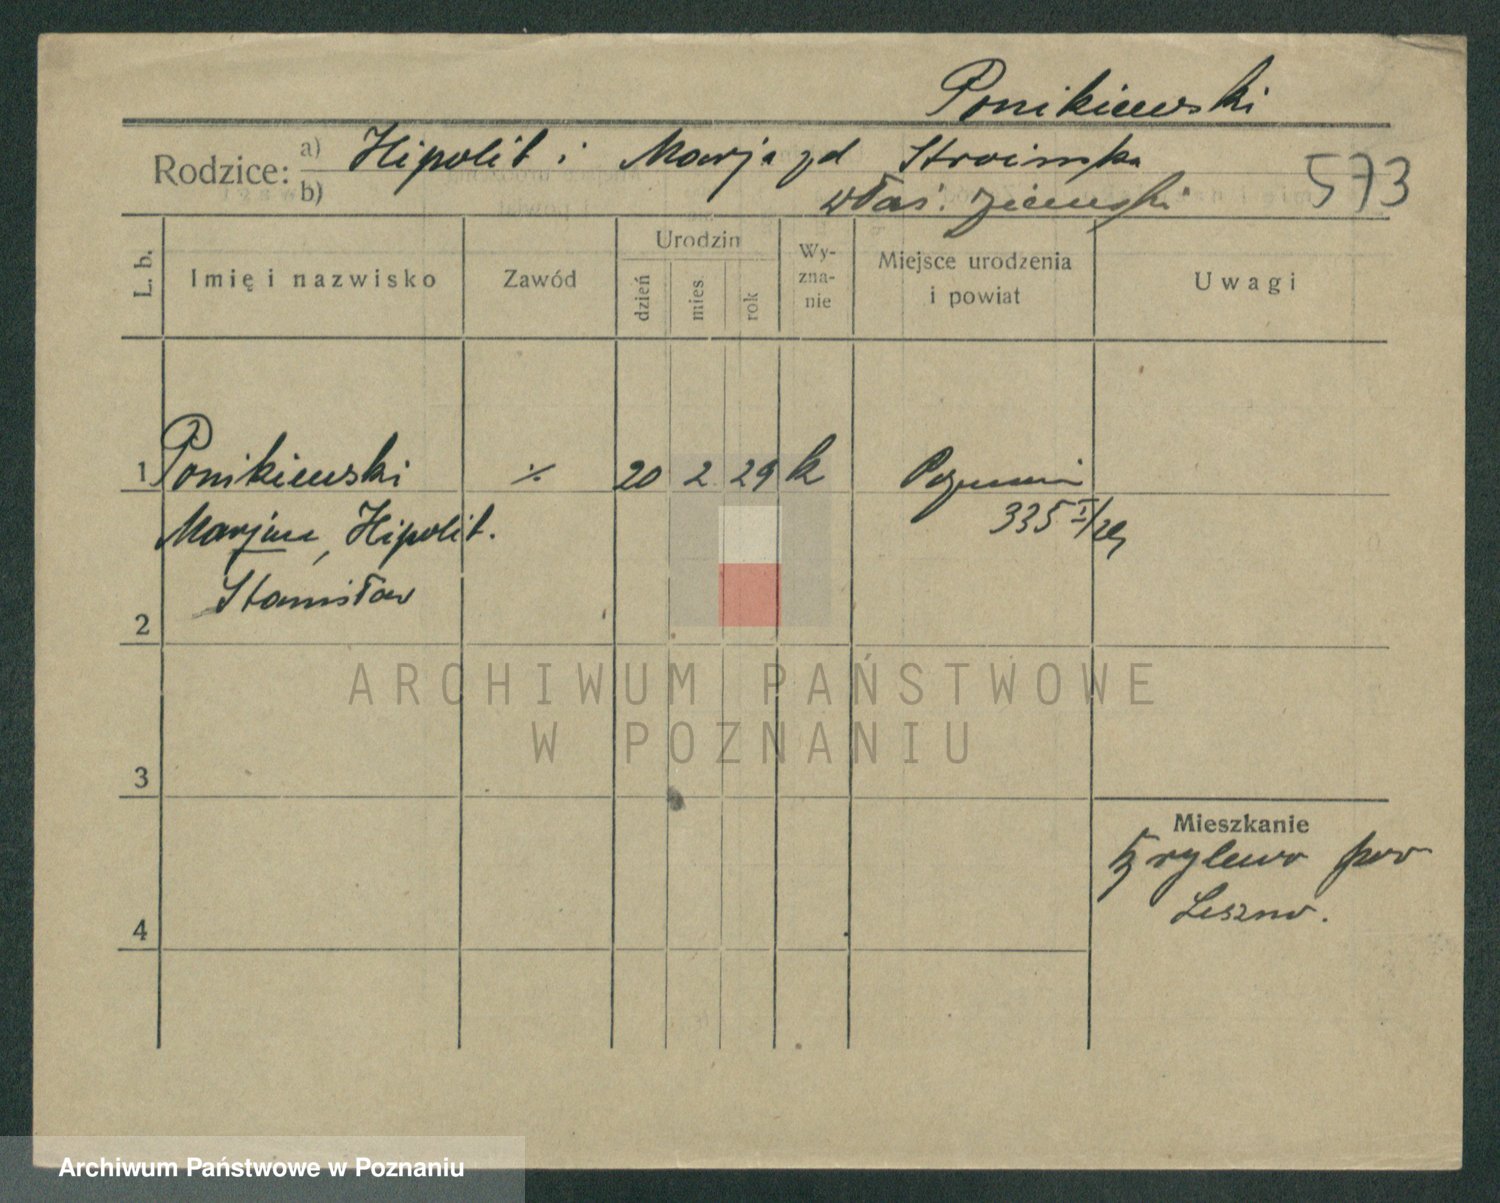 Ponikiewski
Rodzice: a) Hipolit i Marja zd Stroińska
b) właś. ziemski
573
L. b.
Imię i nazwisko
Zawód
Urodzin
dzień
mies
rok
Wy-
zna-
nie
Miejsce urodzenia
i powiat
Uwagi
1 Ponikiewski ·/. 20 2 29 k Poznań
Marjan, Hipolit.
335 I/29
Stanisław
2
ARCHIWUM PAŃSTWOWE
W POZNANIU
3
Mieszkanie
pow
Leszno.
4
Archiwum Państwowe w Poznaniu